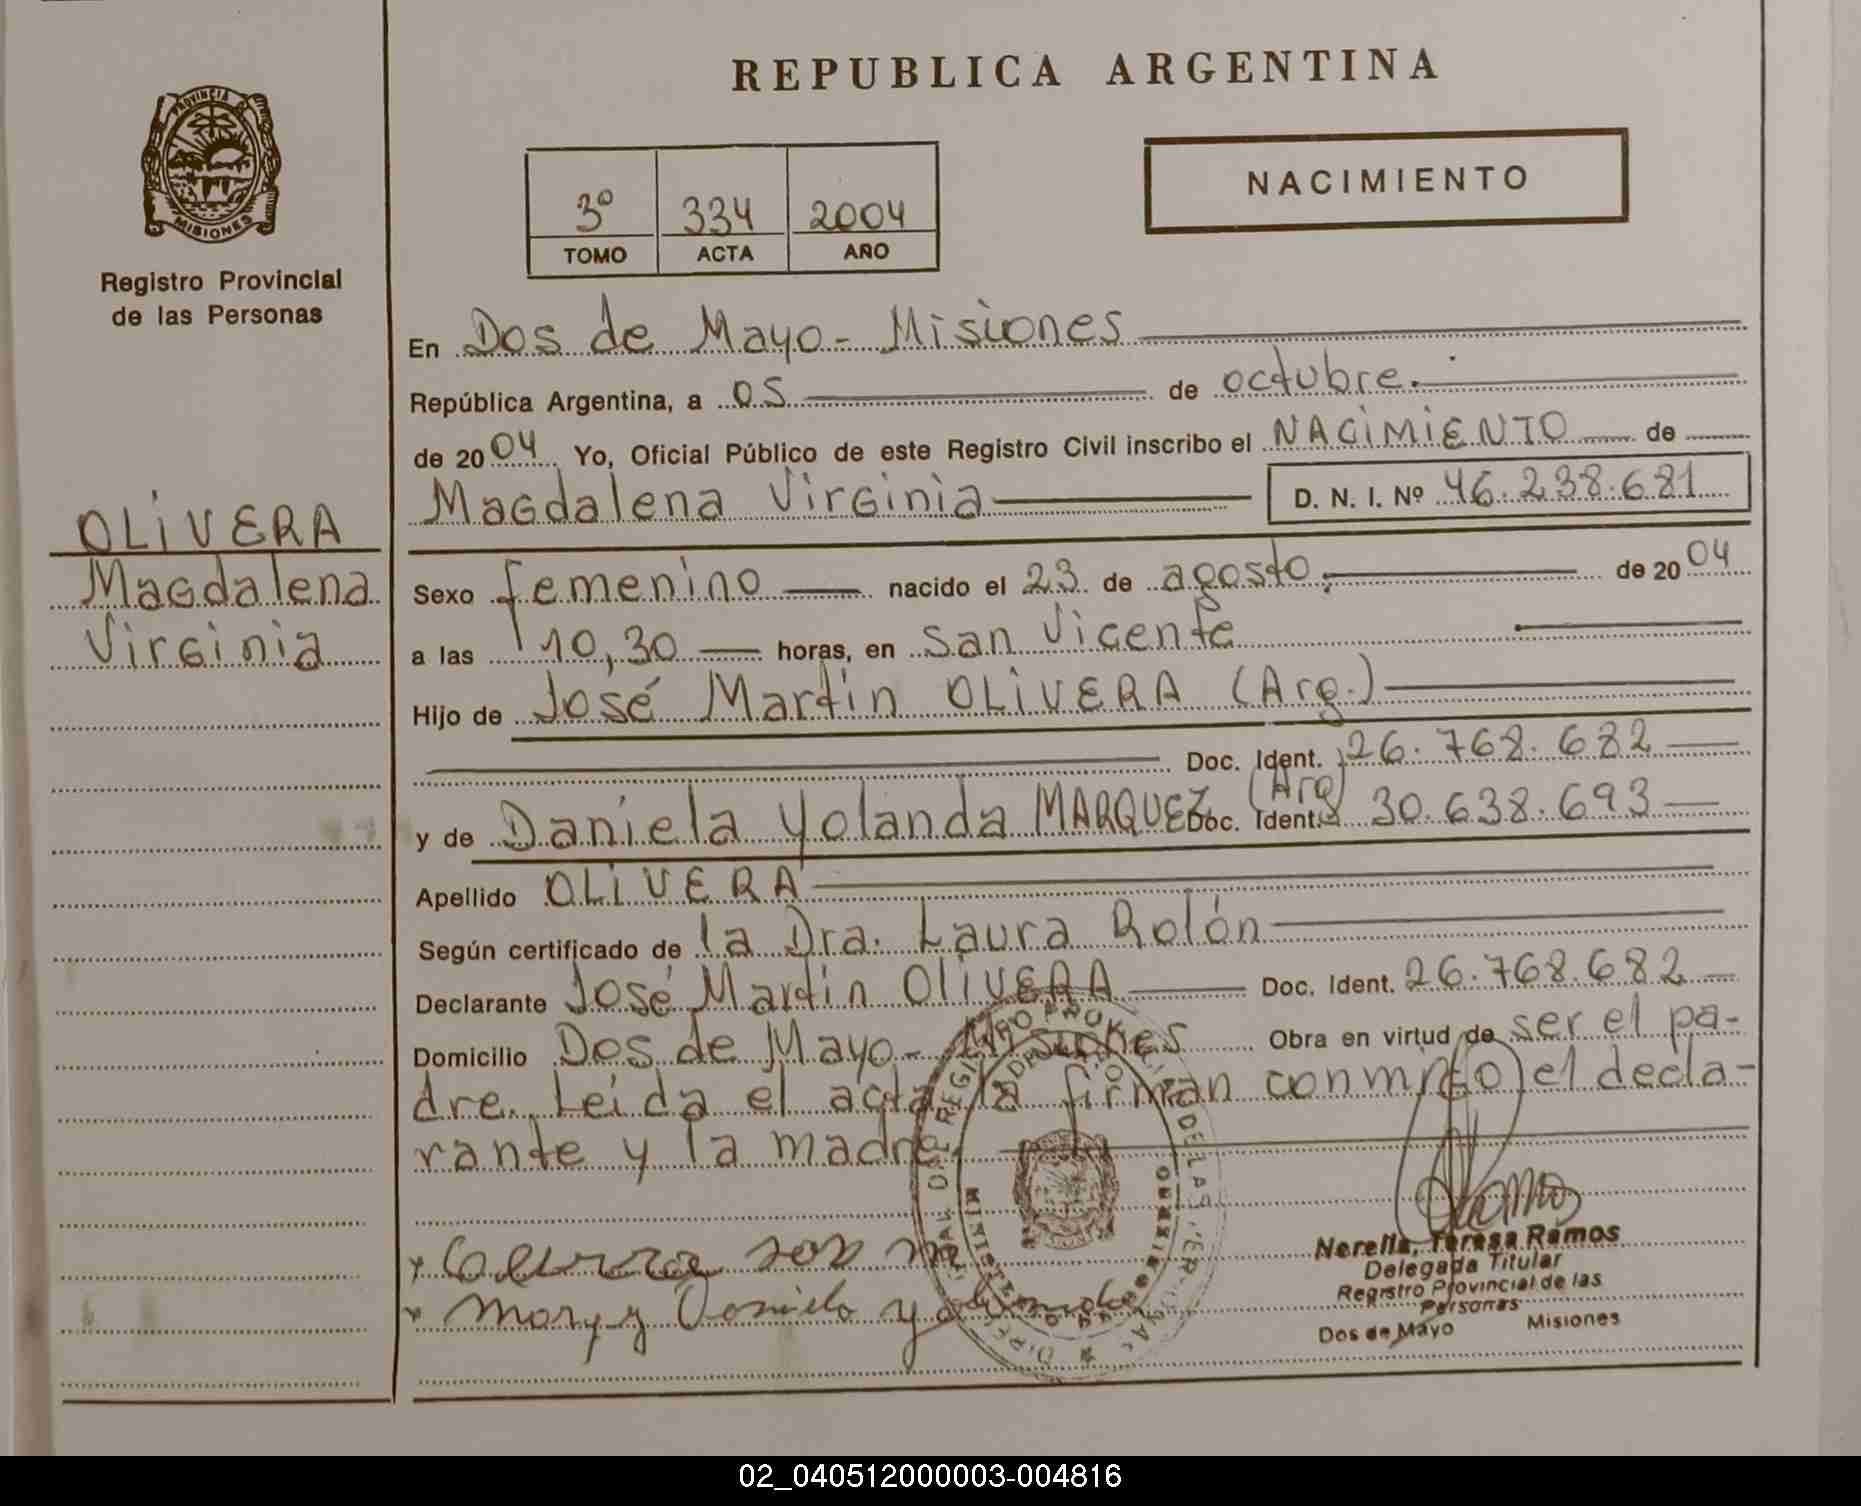 REPUBLICA ARGENTINA
PROVINCIA DE
MISIONES
Registro Provincial
de las Personas
3º 334 2004
TOMO ACTA AÑO
NACIMIENTO
OLIVERA
Magdalena
Virginia
En Dos de Mayo - Misiones
República Argentina, a 05 de octubre.
de 2004 Yo, Oficial Público de este Registro Civil inscribo el NACIMIENTO de
Magdalena Virginia D. N. I. Nº 46.238.681
Sexo femenino nacido el 23 de agosto de 2004
a las 10,30 horas, en San Vicente
Hijo de José Martin OLIVERA (Arg.)
Doc. Ident. 26.768.682
y de Daniela Yolanda MARQUEZ (Arg) Doc. Ident. 30.638.693
Apellido OLIVERA
Según certificado de la Dra. Laura Rolón
Declarante José Martin OLIVERA Doc. Ident. 26.768.682
Domicilio Dos de Mayo - Misiones Obra en virtud de ser el pa-
dre. Leída el acta, la firman conmigo el decla-
rante y la madre.
Nerella, Teresa Ramos
Delegada Titular
Registro Provincial de las
Personas
Dos de Mayo Misiones
02_040512000003-004816